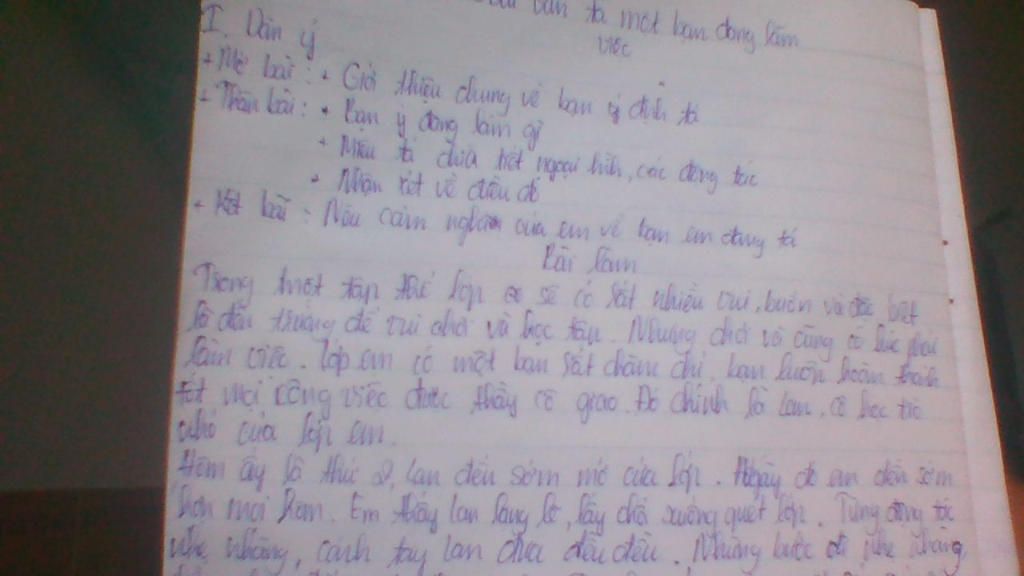 bài văn tả một bạn đang làm
việc
I. Dàn ý
+ Mở bài : + Giới thiệu chung về bạn ý định tả
+ Thân bài : + Bạn ý đang làm gì
+ Miêu tả chi tiết ngoại hình, các động tác
+ Nhận xét về điều đó
+ Kết bài : Nêu cảm nghĩ của em về bạn em đang tả
Bài làm
Trong một tập thể lớp sẽ có rất nhiều vui, buồn và đặc biệt
là đến trường để vui chơi và học tập. Nhưng chơi và cũng có lúc phải
làm việc. Lớp em có một bạn rất chăm chỉ, bạn luôn hoàn thành
tốt mọi công việc được thầy cô giao. Đó chính là Lan, cô học trò
nhỏ của lớp em.
Hôm ấy là thứ 2, Lan đến sớm mở cửa lớp. Ngày đó em đến sớm
hơn mọi hôm. Em thấy Lan lặng lẽ, lấy chổi xuống quét lớp. Từng động tác
nhẹ nhàng, cánh tay Lan đưa đều đều. Những bước đi nhẹ nhàng,